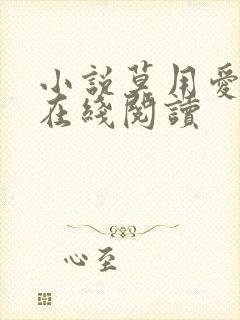 小説草用愛
在綫閱讀
心至